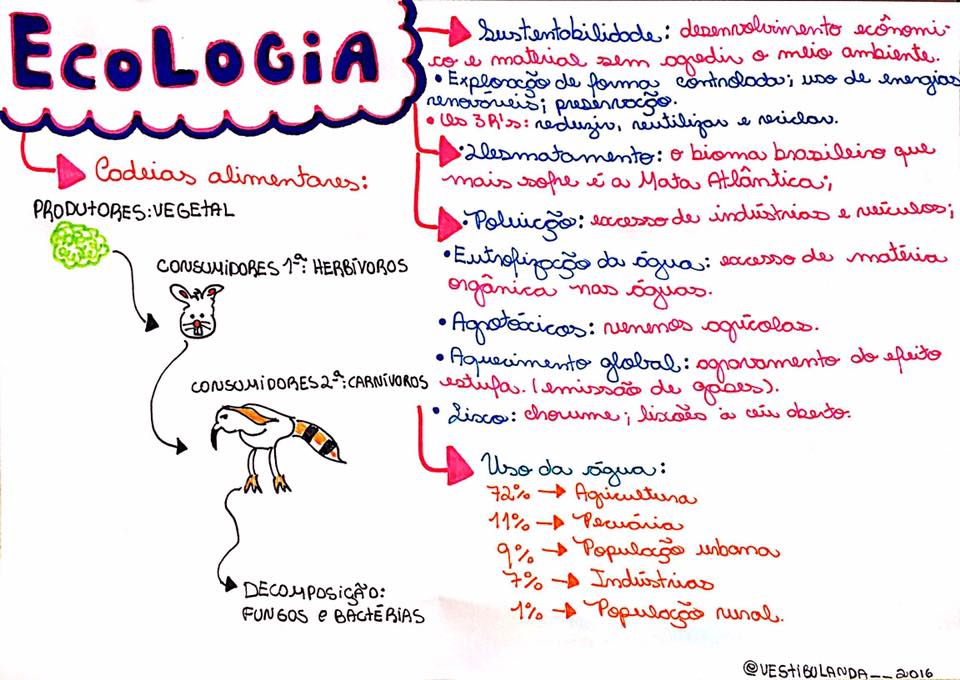 ECOLOGIA
Cadeias alimentares:
PRODUTORES: VEGETAL
CONSUMIDORES 1ª: HERBÍVOROS
CONSUMIDORES 2ª: CARNÍVOROS
DECOMPOSIÇÃO:
FUNGOS e BACTÉRIAS
Sustentabilidade: desenvolvimento econômi-
co e material sem agredir o meio ambiente.
• Exploração de forma controlada; uso de energias
renováveis; preservação.
• Os 3R's: reduzir, reutilizar e reciclar.
• Desmatamento: o bioma brasileiro que
mais sofre é a Mata Atlântica;
• Poluição: excesso de indústrias e veículos;
• Eutrofização da água: excesso de matéria
orgânica nas águas.
• Agrotóxicos: venenos agrícolas.
• Aquecimento global: agravamento do efeito
estufa. (emissão de gases).
• Lixo: chorume; lixões à céu aberto.
Uso da água:
72% → Agricultura
11% → Pecuária
9% → População urbana
7% → Indústrias
1% → População rural.
@VESTIBULANDA__2016